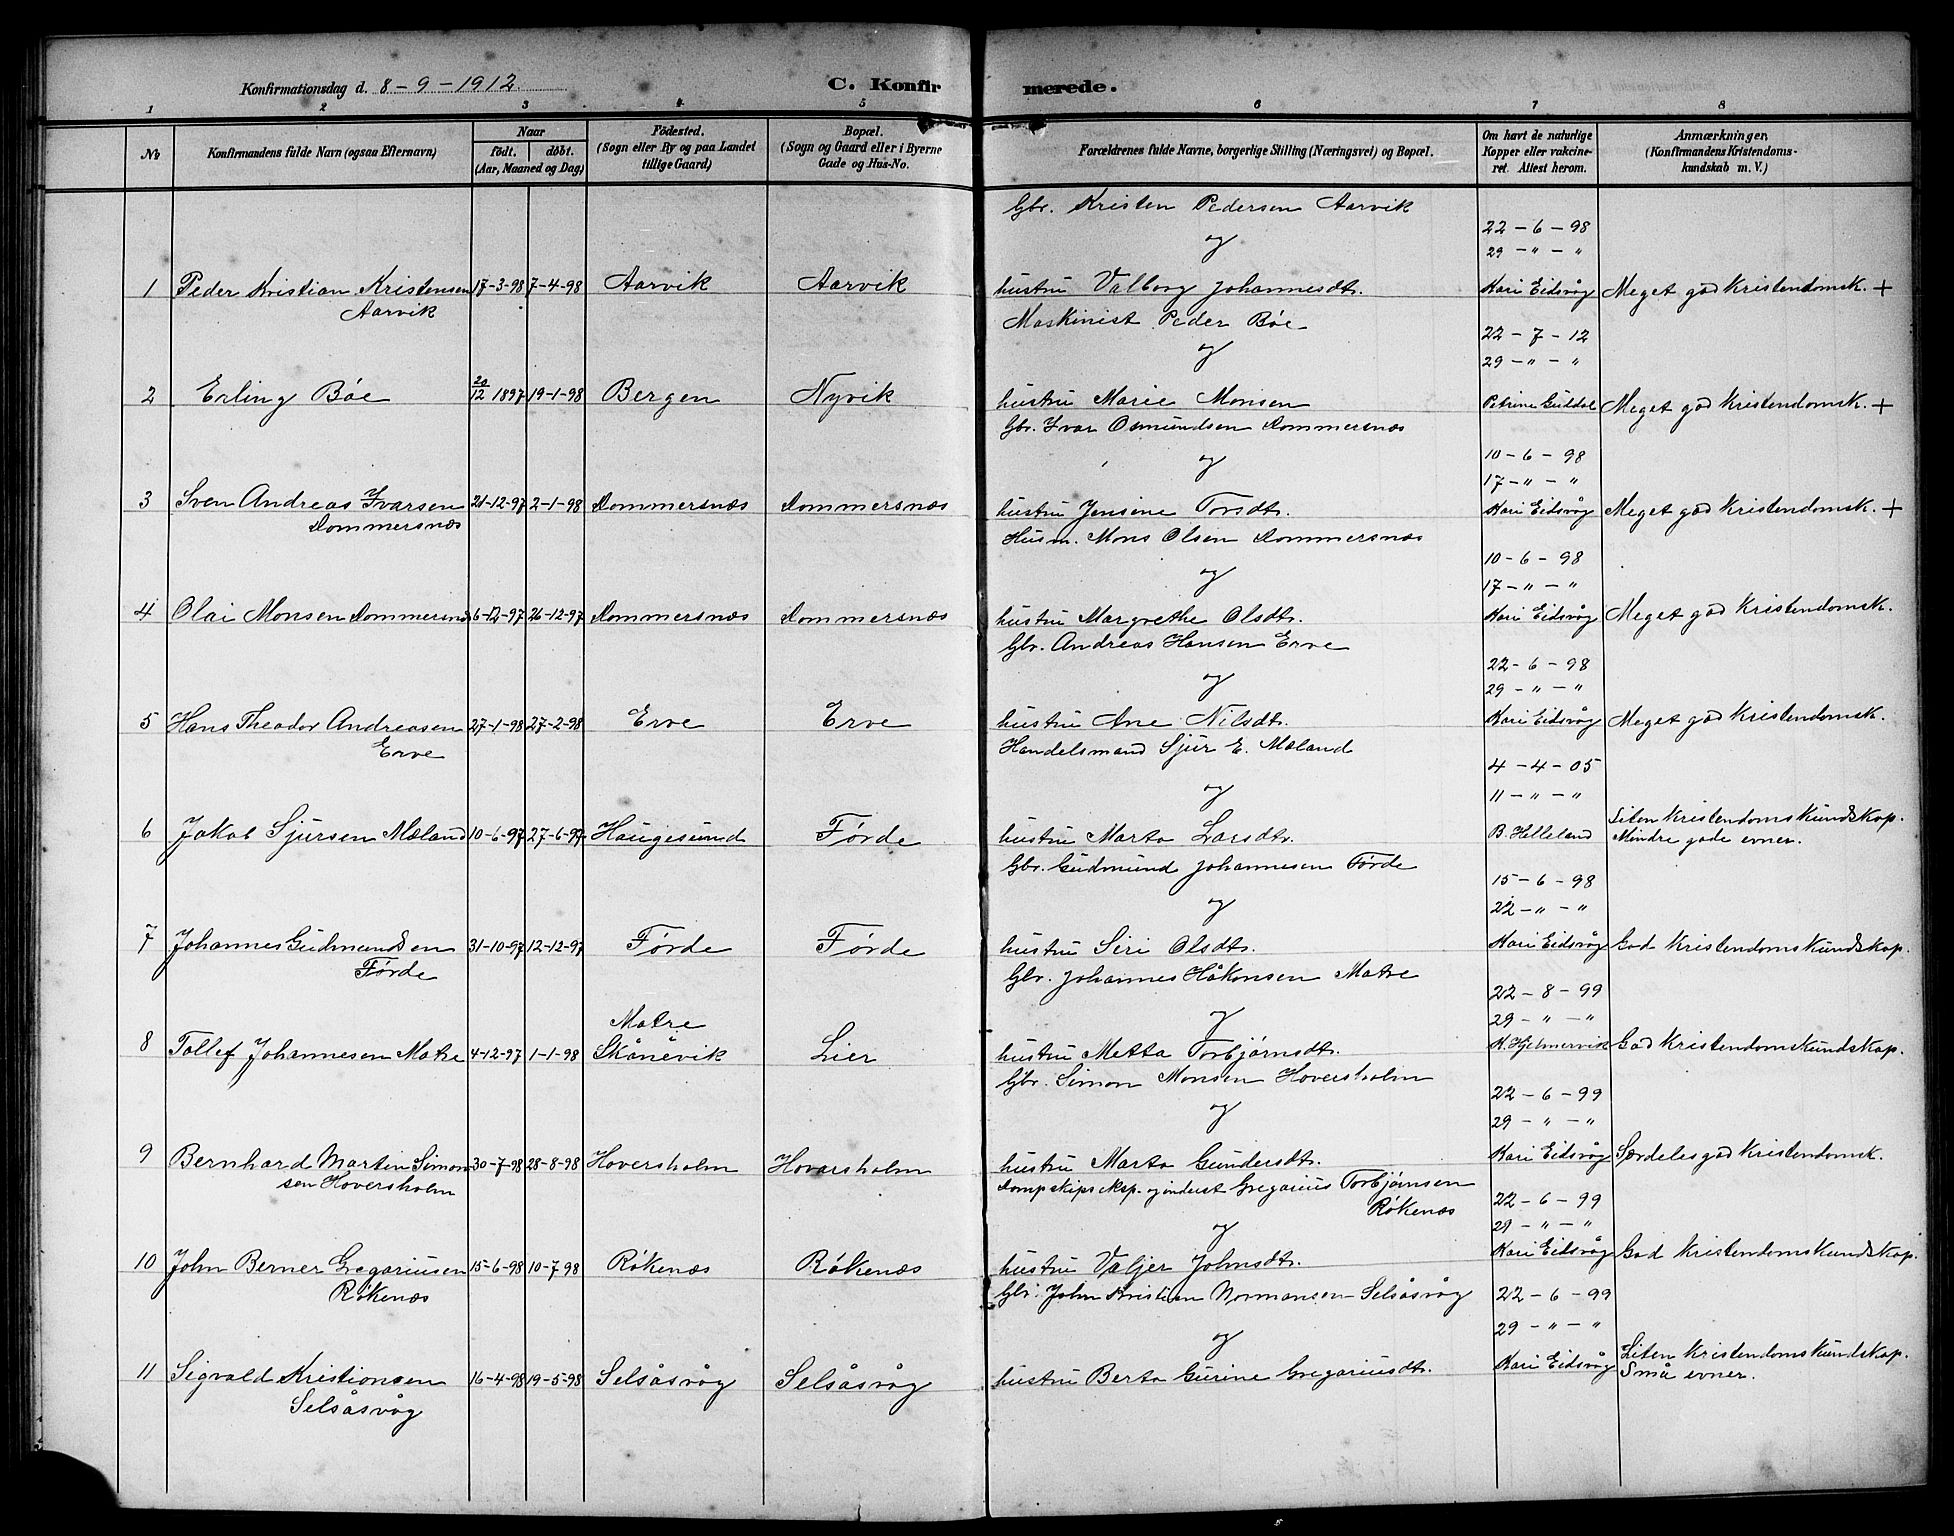 Konfirmationsdag d. 8 - 9 - 1912. C. Konfirmerede.
1 2 3 4 5 6 7 8
No. Konfirmandens fulde Navn (ogsaa Efternavn) Naar født. døbt. (Aar, Maaned og Dag) Fødested. (Sogn eller By og paa Landet tillige Gaard) Bopæl. (Sogn og Gaard eller i Byerne Gade og Hus-No. Forældrenes fulde Navne, borgerlige Stilling (Næringsvei) og Bopæl. Om havt de naturlige Kopper eller vakcineret. Attest herom. Anmærkninger. (Konfirmandens Kristendomskundskab m. V.)
Gbr. Kristen Pedersen Aarvik
22 - 6 - 98
og
29 - " - "
1 Peder Kristian Kristensen 17-3-98 7-4-98 Aarvik Aarvik hustru Valborg Johannesdtr. Kari Eidsvåg Meget god Kristendomsk. +
Aarvik
Maskinist Peder Bøe
22 - 7 - 12
og
29 - " - "
2 Erling Bøe 20/12 1897 19-1-98 Bergen Nyvik hustru Marie Monsen Petrine Guddal Meget god Kristendomsk. +
Gbr. Ivar Osmundsen Dommersnæs
10 - 6 - 98
og
17 - " - "
3 Sven Andreas Ivarsen 21-12-97 2-1-98 Dommersnæs Dommersnæs hustru Jensine Torsdtr. Kari Eidsvåg Meget god Kristendomsk. +
Dommersnæs
Husm. Mons Olsen Dommersnæs
10 - 6 - 98
og
17 - " - "
4 Olai Monsen Dommersnæs 6-12-97 26-12-97 Dommersnæs Dommersnæs hustru Margrethe Olsdtr. Kari Eidsvåg Meget god Kristendomsk.
Gbr. Andreas Hansen Erve
22 - 6 - 98
og
29 - " - "
5 Hans Theodor Andreasen 27-1-98 27-2-98 Erve Erve hustru Ane Nilsdtr. Kari Eidsvåg Meget god Kristendomsk.
Erve
Handelsmand Sjur E. Mæland
4 - 4 - 05
og
11 - " - "
6 Jakob Sjursen Mæland 10-6-97 27-6-97 Haugesund Førde hustru Marta Larsdtr. B. Helleland Liten Kristendomskundskap.
Mindre gode evner.
Gbr. Gudmund Johannesen Førde
15 - 6 - 98
og
22 - " - "
7 Johannes Gudmundsen 31-10-97 12-12-97 Førde Førde hustru Siri Olsdtr. Kari Eidsvåg God Kristendomskundskap.
Førde
Gbr. Johannes Håkonsen Matre
22 - 8 - 99
og
29 - " - "
8 Tollef Johannesen Matre 4-12-97 1-1-98 Matre Skånevik Lier hustru Metta Torbjørnsdtr. K. Hjelmervik God Kristendomskundskap.
Gbr. Simon Monsen Hoversholm
22 - 6 - 99
og
29 - " - "
9 Bernhard Martin Simon- 30-7-98 28-8-98 Hoversholm Hovarsholm hustru Marta Gundersdtr. Kari Eidsvåg Særdeles god Kristendomsk.
sen Hoversholm
Dampskipseksp. og inderst Gregarius Torbjørnsen
Røkenæs
22 - 6 - 99
og
29 - " - "
10 John Berner Gregariusen 15-6-98 10-7-98 Røkenæs Røkenæs hustru Valjer Johnsdtr. Kari Eidsvåg God Kristendomskundskap.
Røkenæs
Gbr. John Kristian Normansen Selsåsvåg
22 - 6 - 99
og
29 - " - "
11 Sigvald Kristiansen 16-4-98 19-5-98 Selsåsvåg Selsåsvåg hustru Berta Gurine Gregariusdtr. Kari Eidsvåg Liten Kristendomskundskap.
Selsåsvåg
Små evner.